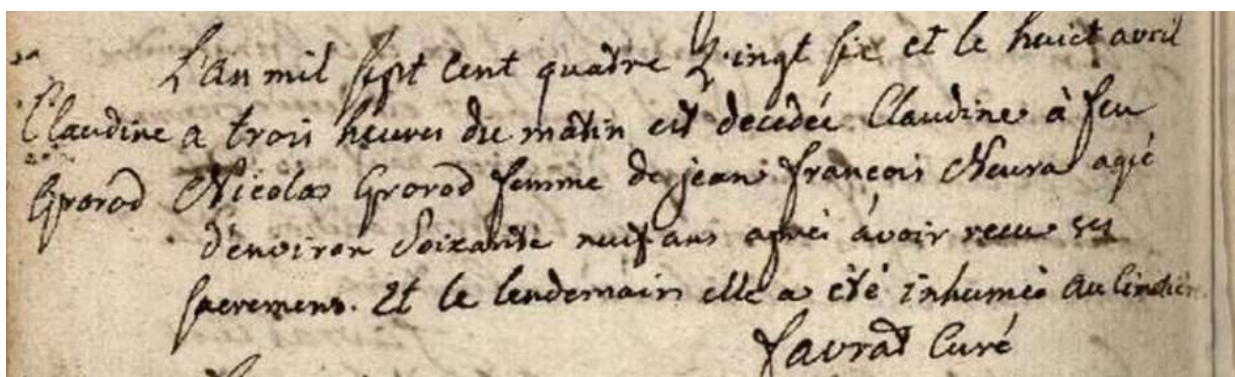 L'an mil sept cent quatre vingt six et le huict avril
Claudine a trois heures du matin est decedée Claudine à feu
Grorod Nicolas Grorod femme de jean françois Neura agée
d'environ soixante neuf ans aprés avoir recu ses
sacremens. Et le lendemain elle a été inhumée au
favrat Curé